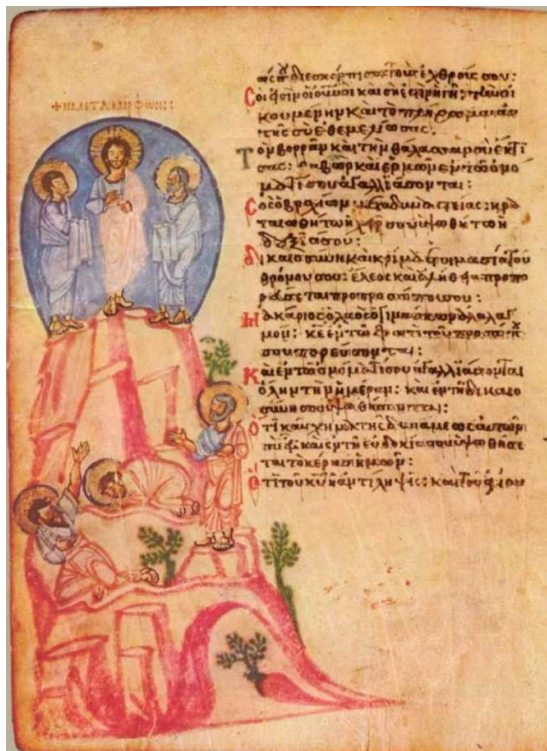 + Η ΜΕΤΑΜΟΡΦΩΣΙΣ:
σου διεσκόρπισας τοὺς ἐχθρούς σου:
Σοί εἰσιν οἱ οὐνοὶ καὶ σή ἐστιν ἡ γῆ: τὴν οἰ
κουμένην καὶ τὸ πλήρωμα αὐ
τῆς σὺ ἐθεμελίωσας.
Τὸν βορρᾶν καὶ τὴν θάλασσαν σὺ ἔκτι
σας: θαβὼρ καὶ ερμὼν ἐν τῶ ὀνό
ματί σου ἀγαλλιάσονται:
Σὸς ὁ βραχίων μετὰ δυναστείας: κρα
ταιωθήτω ἡ χείρ σου ὑψωθήτω ἡ
δεξιά σου:
Δικαιοσύνη καὶ κρίμα ἑτοιμασία τοῦ
θρόνου σου: ἔλεος καὶ ἀλήθεια προπο
ρεύσεται προ προσώπου σου:
Μακάριος ὁ λαὸς ὁ γινώσκων ἀλαλαγ
μόν: κε ἐν τῶ φωτὶ τοῦ προσώπου
σου πορεύσονται:
Καὶ ἐν τῶ ὀνόματί σου ἀγαλλιάσονται
ὅλην τὴν ἡμέραν: καὶ ἐν τῆ δικαιο
σύνη σου ὑψωθήσονται:
Ὅτι καύχημα τῆς δυνάμεως αὐτῶν
σὺ εἶ: καὶ ἐν τῆ εὐδοκία σου ὑψωθήσε
ται τὸ κέρας ἡμῶν:
Ὅτι τοῦ κυ ἡ ἀντίληψις: καὶ τοῦ ἁγίου